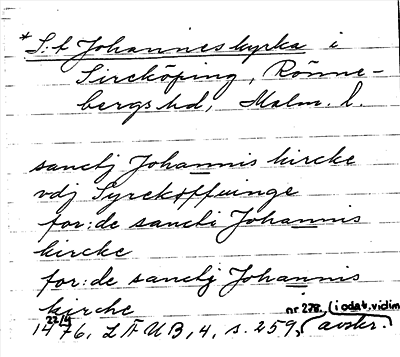 *S:t Johanneskyrka i
Sireköping, Rönne-
bergs hd, Malm. l.
sanctj Johannis kircke
vdj Syrekøffuinge
for:de sancti Johannis
kircke
for:de sanctj Johannis
kirche
22/4 nr 278. (i odat. vidim.
1476, LÄUB, 4, s. 259, avskr.)